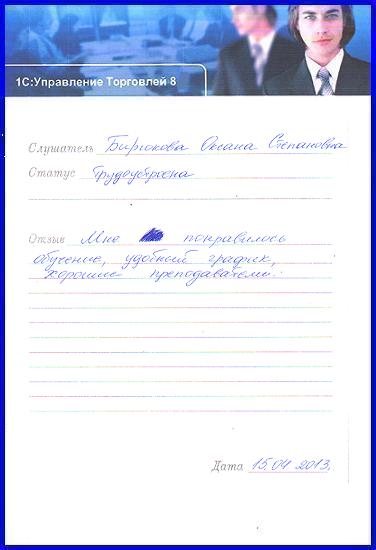 1С:Управление Торговлей 8
Слушатель Бирюкова Оксана Степановна
Статус Трудоустроена
Отзыв Мне понравилось
обучение, удобный график,
хорошие преподаватели.
Дата 15.04 2013.